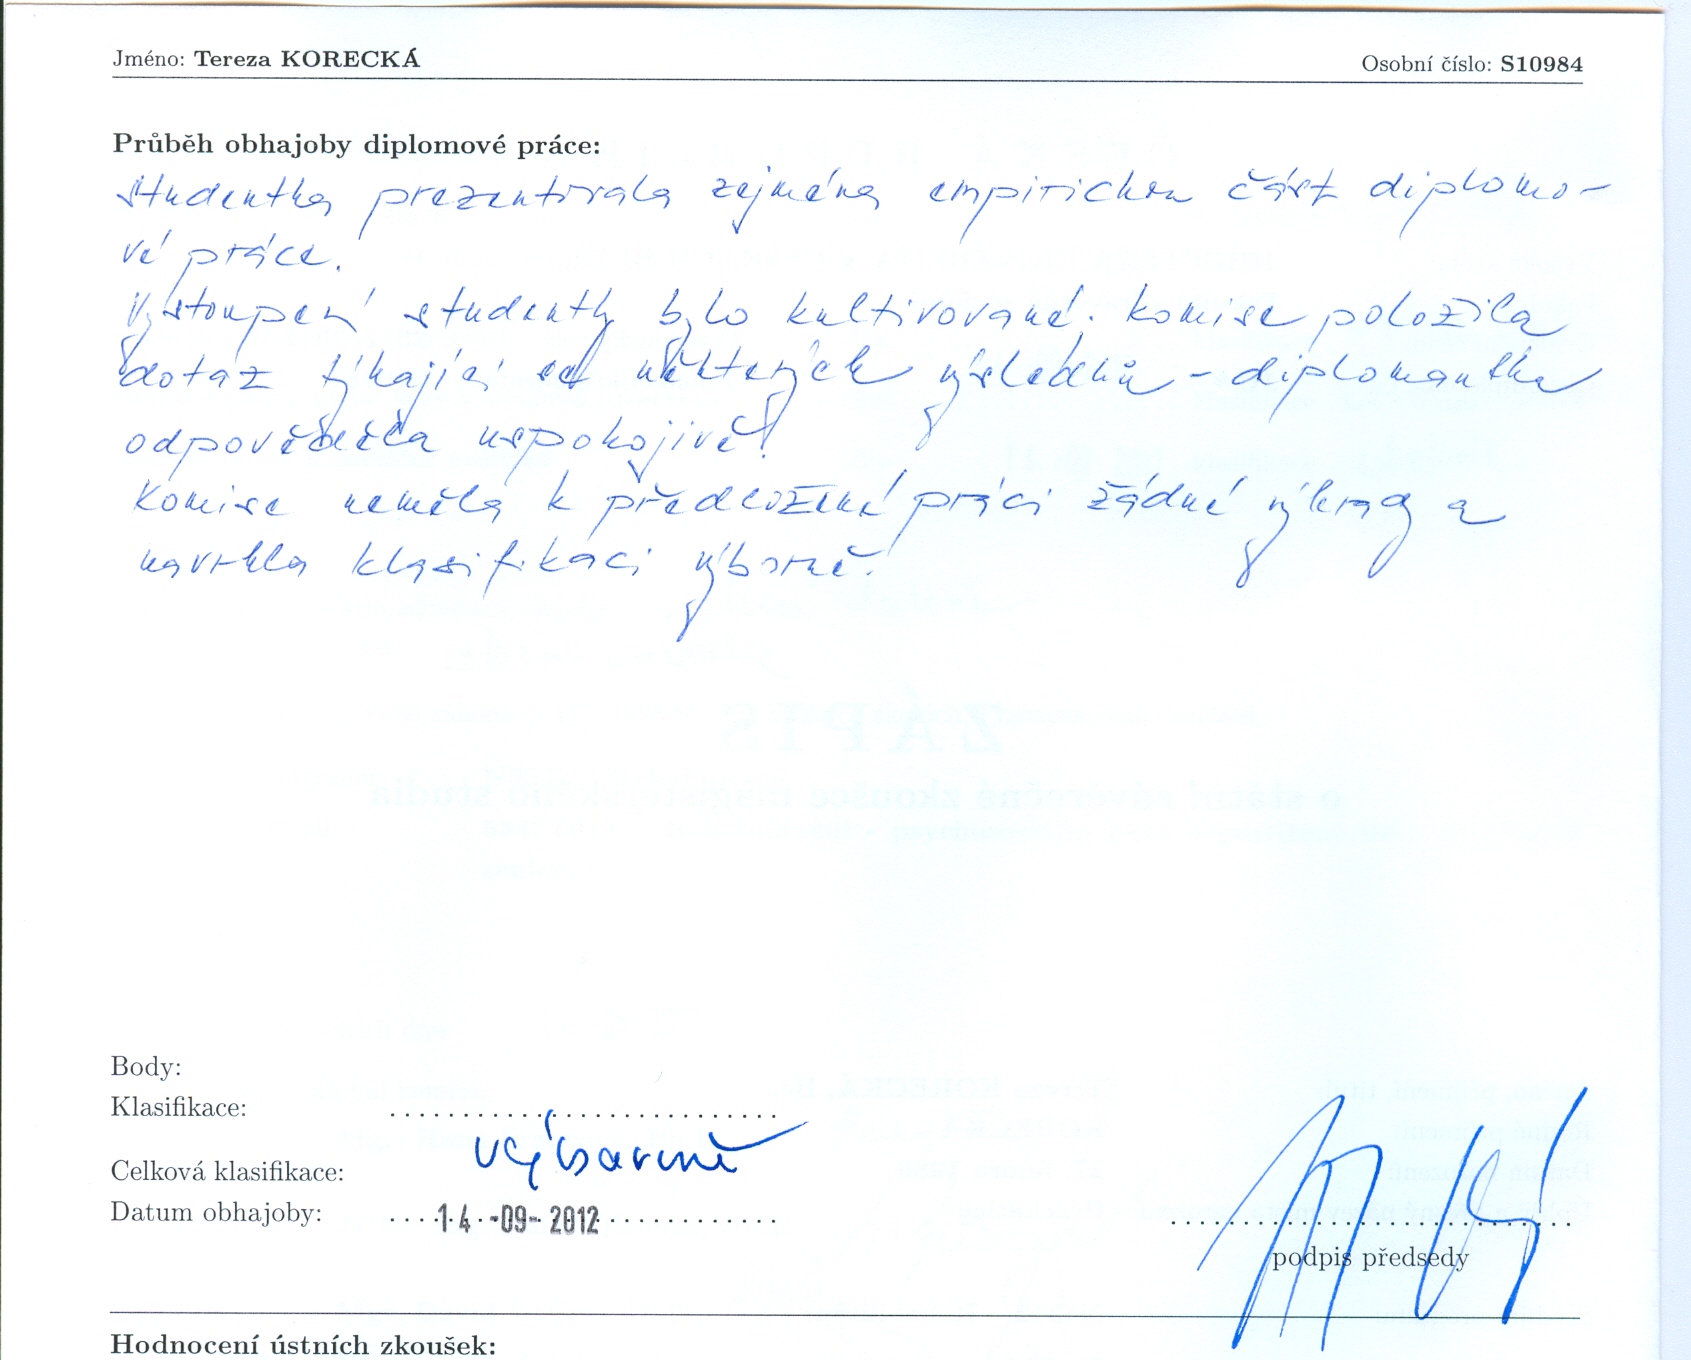 Jméno: Tereza KORECKÁ Osobní číslo: S10984
Průběh obhajoby diplomové práce:
studentka prezentovala zejména empirickou část diplomo-
vé práce.
Vystoupení studentky bylo kultivované. Komise položila
dotaz týkající se některých výsledků - diplomantka
odpověděla uspokojivě.
Komise neměla k předložené práci žádné výhrady a
navrhla klasifikaci výborně.
Body:
Klasifikace:
Celková klasifikace: výborně
Datum obhajoby: 14 -09- 2012
podpis předsedy
Hodnocení ústních zkoušek: